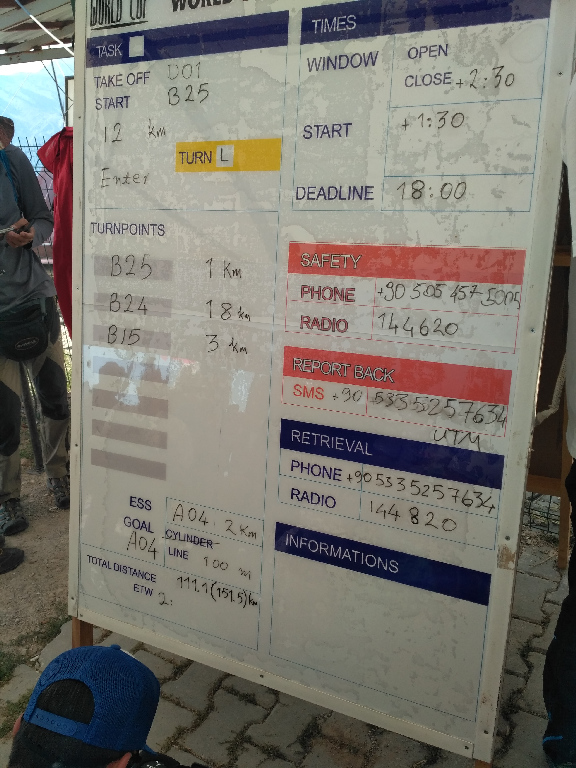 WORLD CUP WORLD
TASK
TAKE OFF D01
START B25
12 km
TURN L
Enter
TURNPOINTS
B25 1 Km
B24 18 km
B15 3 km
ESS A04 2 Km
GOAL CYLINDER
A04 LINE 100 m
TOTAL DISTANCE 111.1 (151.5) km
ETW 2:
TIMES
WINDOW OPEN
CLOSE +2:30
START +1:30
DEADLINE 18:00
SAFETY
PHONE +90 505 457 5005
RADIO 144620
REPORT BACK
SMS +90 5335257634
UTM
RETRIEVAL
PHONE +905335257634
RADIO 144820
INFORMATIONS